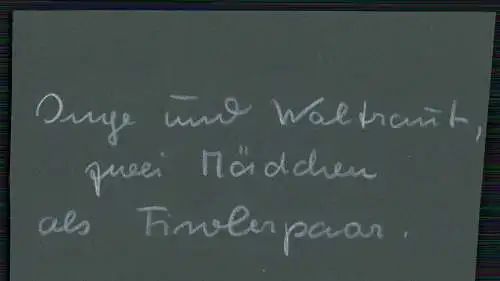 Inge und Waltraut,
zwei Mädchen
als Tirolerpaar.